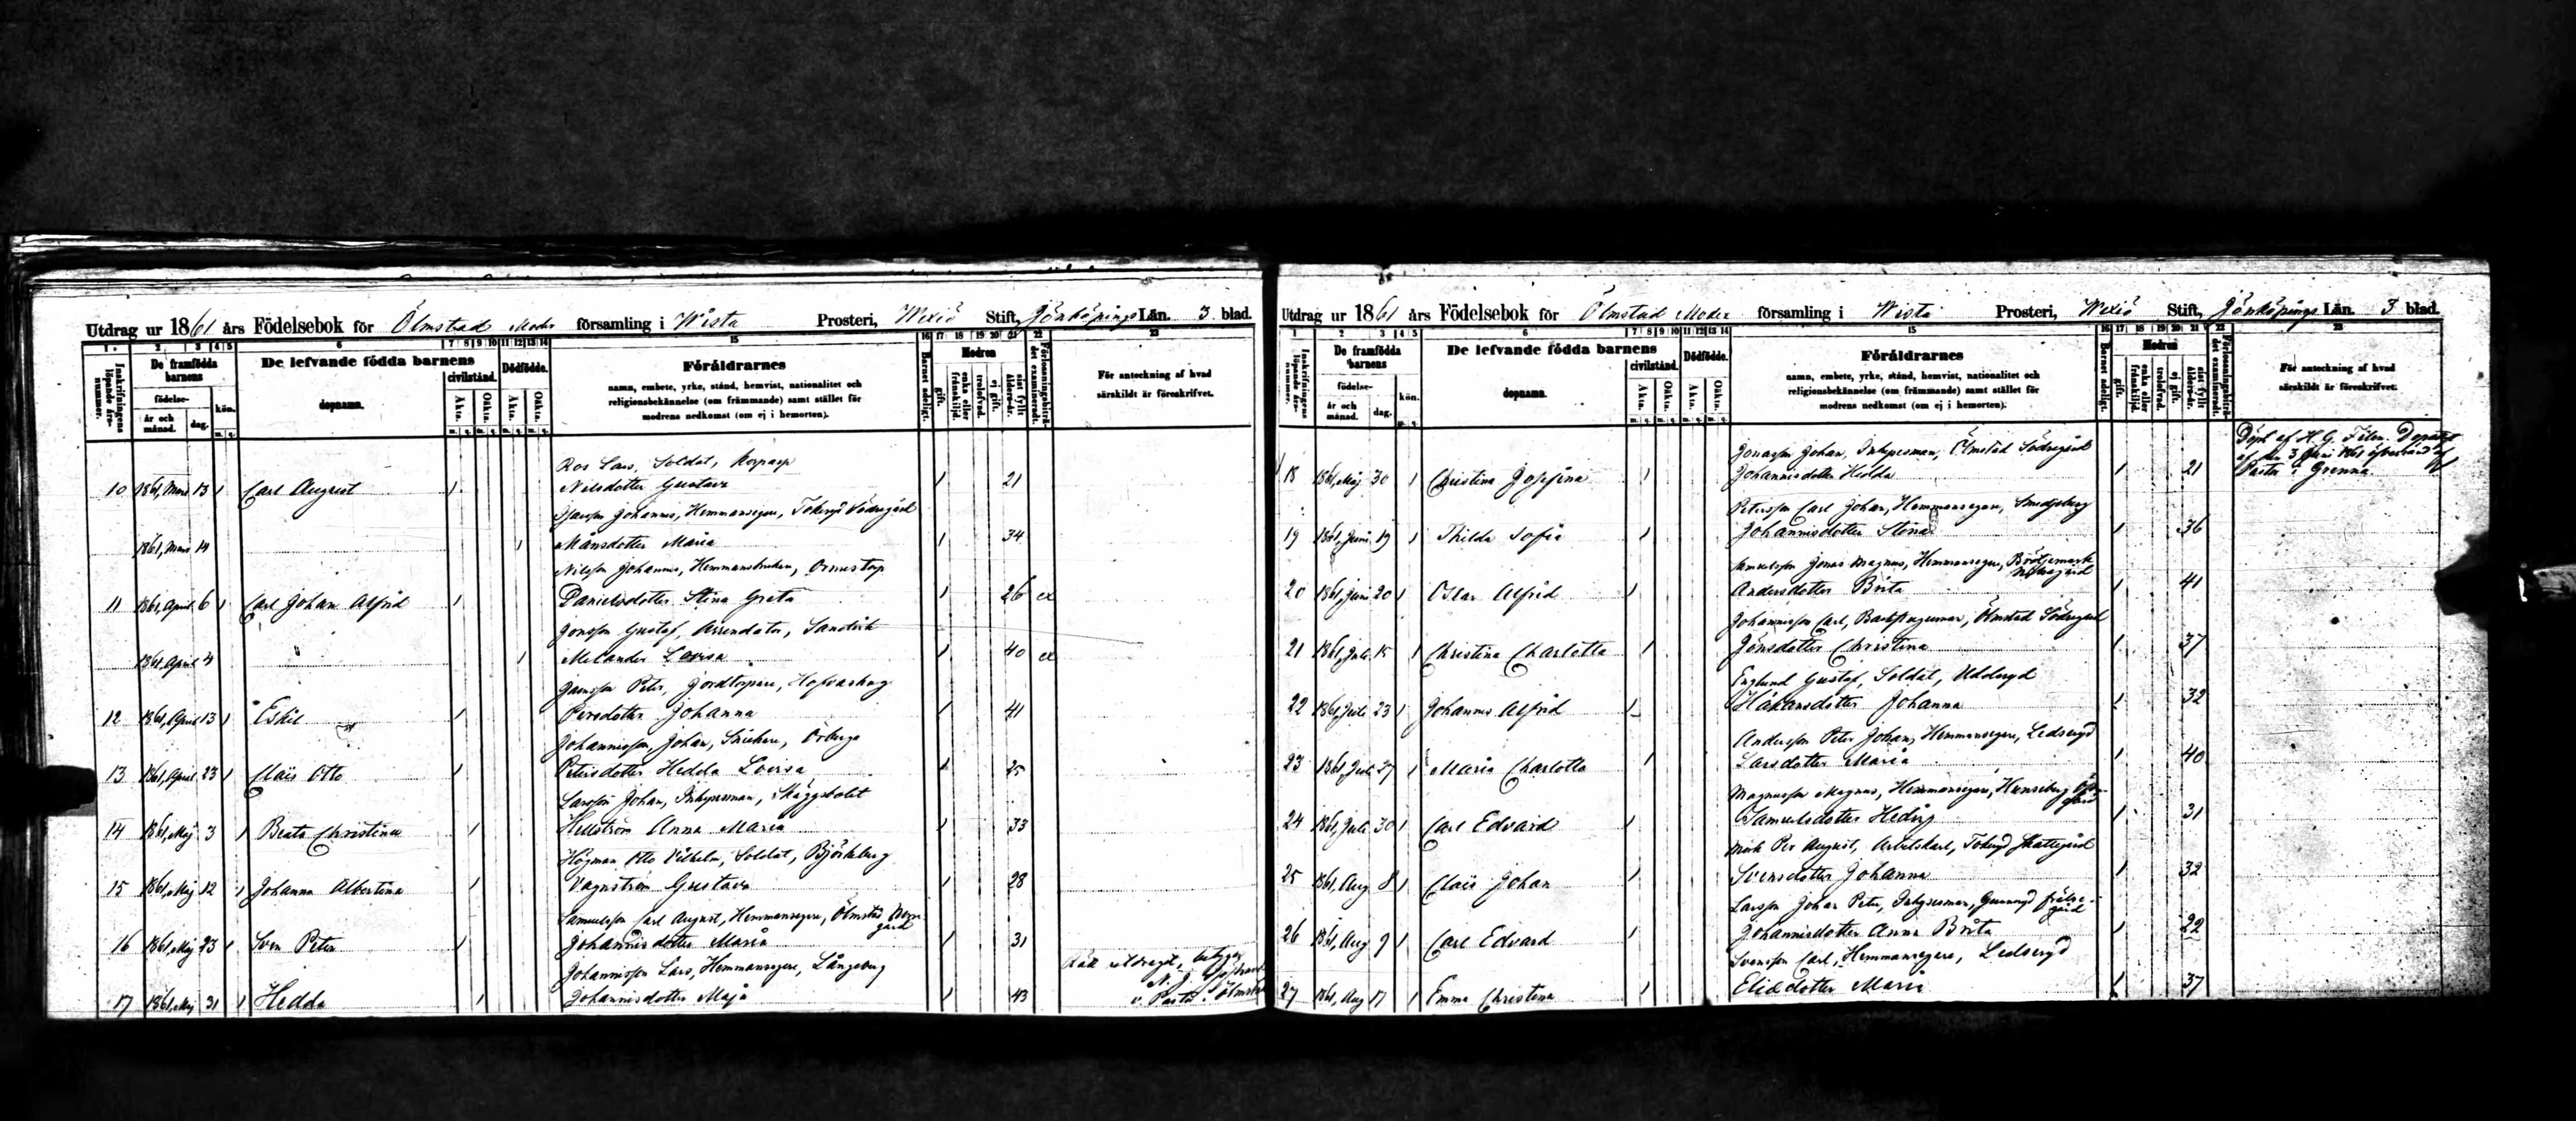 Utdrag ur 1861 års Födelsebok för Ölmstad Moder församling i Wista Prosteri, Wexiö Stift, Jönköpings Län. 3 blad.
1 2 3 4 5 6 7 8 9 10 11 12 13 14 15 16 17 18 19 20 21 22 23
Inskrifningens löpande års-nummer.
De framfödda barnens
födelse-
år och månad. dag.
kön.
m. q.
De lefvande födda barnens
dopnamn.
civilstånd.
Äkta. Oäkta.
Dödfödde.
Äkta. Oäkta.
m. q. m. q. m. q. m. q.
Föräldrarnes
namn, embete, yrke, stånd, hemvist, nationalitet och
religionsbekännelse (om främmande) samt stället för
modrens nedkomst (om ej i hemorten).
Barnet adeligt.
Modren
gift.
enka eller frånskild.
trolofvad.
ej gift.
sist fyllt ålders-år.
Förlossningsbiträdet examineradt.
För anteckning af hvad
särskildt är föreskrifvet.
Ros Lars, Soldat,
10 1861, Mars 13 1 Carl August 1 Nilsdotter Gustava 1 21
Johannes, Hemmansegare, Södregård
1861, Mars 14 1 Månsdotter Maria 1 34
Nilsson Johannes, Hemmansbrukare, Ormestorp
11 1861, April 6 1 Carl Johan Alfrid 1 Danielsdotter Stina Greta 1 26 ex
Jonsson Gustaf, Arrendator, Sandvik
1861, April 4 1 Melander Lovisa 1 40 ex
Peter, Jordtorpare,
12 1861, April 13 1 Eskil 1 Persdotter Johanna 1 41
Johannisson, Johan, Snickare,
13 1861, April 23 1 Claës Otto 1 Petersdotter Hedda Lovisa 1 25
Larsson Johan, Inhysesman, Skäggebolet
14 1861, Maj 3 1 Beata Christina 1 Hellström Anna Maria 1 33
Högman Otto Vilhelm, Soldat, Björkeberg
15 1861, Maj 12 1 Johanna Albertina 1 Vagnström Gustava 1 28
Samuelsson Carl August, Hemmansegare, Ölmstad Norregård
16 1861, Maj 23 1 Sven Peter 1 Johannisdotter Maria 1 31
Johannisson Lars, Hemmansegare, Långeberg
17 1861, Maj 31 1 Hedda 1 Johannisdotter Maja 1 43
Rätt utdraget, betygar
N. J.
v. Pastor i Ölmstad
Utdrag ur 1861 års Födelsebok för Ölmstad Moder församling i Wista Prosteri, Wexiö Stift, Jönköpings Län. 3 blad.
1 2 3 4 5 6 7 8 9 10 11 12 13 14 15 16 17 18 19 20 21 22 23
Inskrifningens löpande års-nummer.
De framfödda barnens
födelse-
år och månad. dag.
kön.
m. q.
De lefvande födda barnens
dopnamn.
civilstånd.
Äkta. Oäkta.
Dödfödde.
Äkta. Oäkta.
Föräldrarnes
namn, embete, yrke, stånd, hemvist, nationalitet och
religionsbekännelse (om främmande) samt stället för
modrens nedkomst (om ej i hemorten).
Barnet adeligt.
Modren
gift.
enka eller frånskild.
trolofvad.
ej gift.
sist fyllt ålders-år.
Förlossningsbiträdet examineradt.
För anteckning af hvad
särskildt är föreskrifvet.
Jonasson Johan, Inhysesman, Ölmstad Södregård
Döpt af H. G.
den 3 Juni 1861
18 1861, Maj 30 1 Christina Josefina 1 Johannisdotter Hedda 1 21 Pastor i Grenna
Petersson Carl Johan, Hemmansegare, Smedjeberg
19 1861, Juni 19 1 Thilda Sofia 1 Johannisdotter Stina 1 36
Samuelsson Jonas Magnus, Hemmansegare, Brötjemark
20 1861, Juni 20 1 Oskar Alfrid 1 Andersdotter Brita 1 41
Johannisson Carl, Ölmstad Södregård
21 1861, Juli 15 1 Christina Charlotta 1 Jönsdotter Christina 1 37
Englund Gustaf, Soldat, Udderyd
22 1861, Juli 23 1 Johannes Alfrid 1 Håkansdotter Johanna 1 32
Andersson Peter Johan, Hemmansegare, Ledseryd
23 1861, Juli 27 1 Maria Charlotta 1 Larsdotter Maria 1 40
Magnusson Magnus, Hemmansegare,
24 1861, Juli 30 1 Carl Edvard 1 Samuelsdotter Hedvig 1 31
Per August, Arbetskarl, Skattegård
25 1861, Aug 8 1 Claës Johan 1 Svensdotter Johanna 1 32
Larsson Johan Peter, Inhysesman, Gunneryd frälsegård
26 1861, Aug 9 1 Carl Edvard 1 Johannisdotter Anna Brita 1 22
Svensson Carl, Hemmansegare, Ledseryd
27 1861, Aug 17 1 Emma Christina 1 Eliædotter Maria 1 37